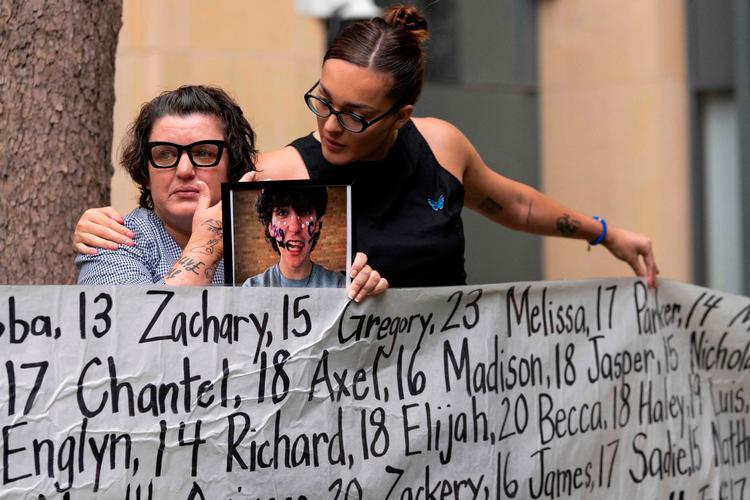 13 Zachary, 15 Gregory, 23 Melissa, 17 Parker, 14
17 Chantel, 18 Axel, 16 Madison, 18 Jasper, 15
Englyn, 14 Richard, 18 Elijah, 20 Becca, 18 Haley,
20 Zackery, 16 James, 17 Sadie, 15